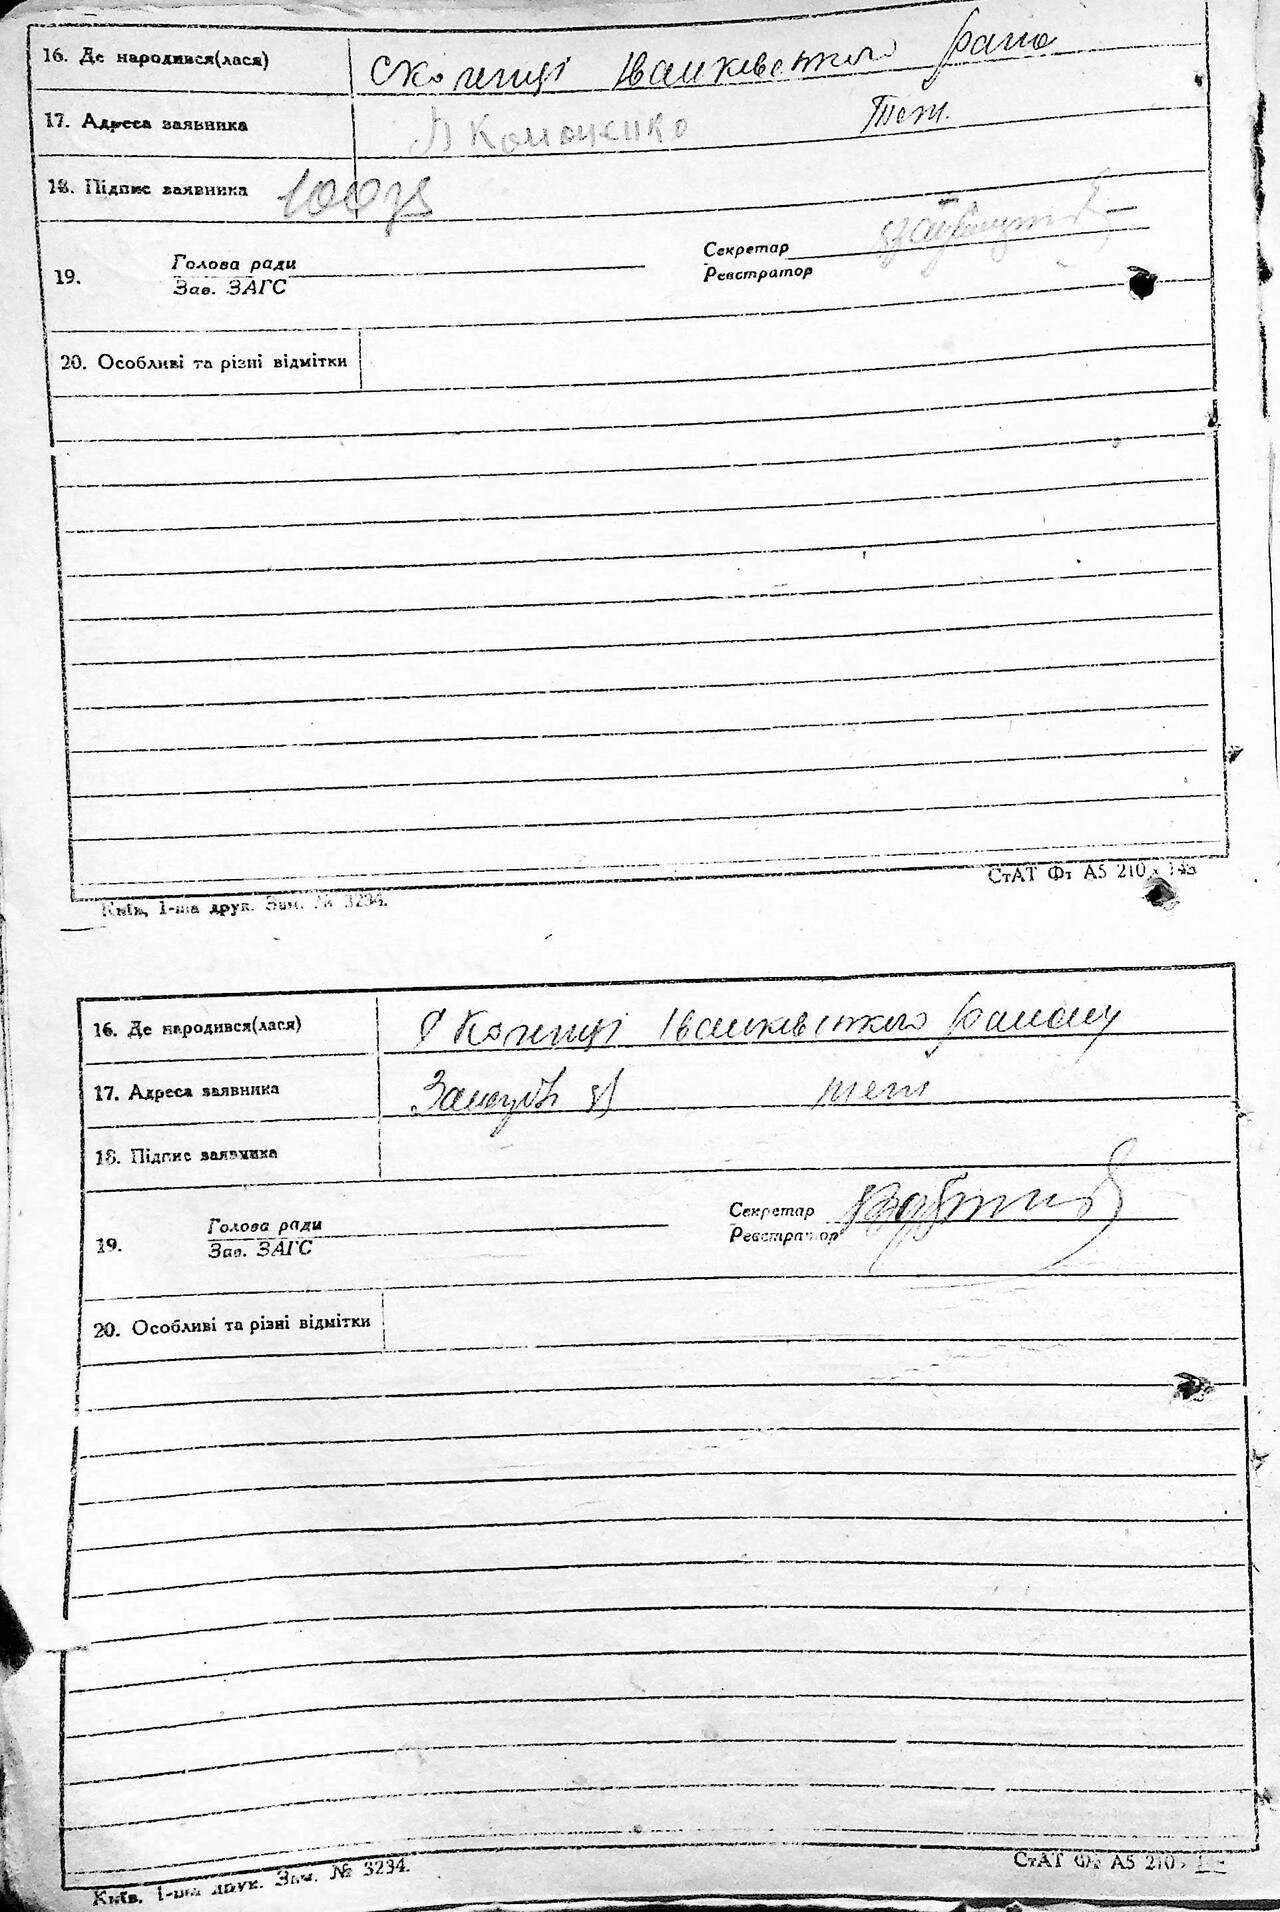 16. Де народився(лася) с Коленці Іванківського райо
17. Адреса заявника теж.
18. Підпис заявника
Секретар
Голова ради
Реєстратор
19.
Зав. ЗАГС
20. Особливі та різні відмітки
СтАТ Фт А5 210 х 148
Київ, 1-ша друк. Зам. № 3234.
16. Де народився(лася) с Коленці Іванківського району
17. Адреса заявника теж
18. Підпис заявника
Секретар
Голова ради
Реєстратор
19.
Зав. ЗАГС
20. Особливі та різні відмітки
СтАТ Фт А5 210 х
Київ, 1-ша друк. Зам. № 3234.